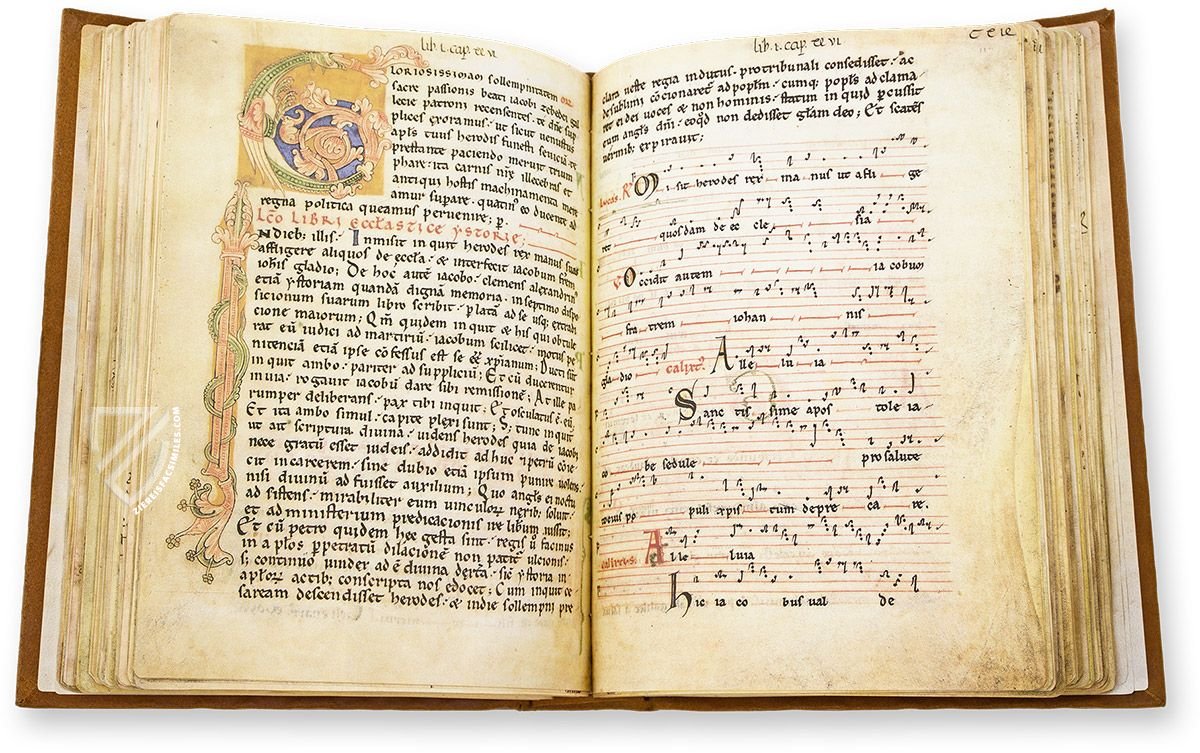 lib. i. cap. xxvi
GLORIOSISSIMAM sollempnitatem
sacre passionis beati iacobi zebedei gal
lecie patroni recensentes. te dn̄e sup
plices exoramus. ut sicut venustus
apl̄s tuus herodis funesti seviciā te
prestante paciendo meruit trium
phare. ita carnis nr̄e illecebras et
antiqui hostis machinamenta
amur supare. quatin' eo ducente ad
regna politica queamus pervenire; p.
Lc̄o LIBRI eccl̄astice ystorie;
INdieb; illis. Inmisit inquit herodes rex manus suas
affligere aliquos de eccl̄a. & interfecit iacobum frem̄
ioh̄is gladio; De hoc autē iacobo. clemens alexandrin'
etiā ystoriam quandā dignā memoria. inseptimo dispo
sicionum suarum libro scribit. platā ad se usq; extradi
cione maiorum; Qm̄ quidem inquit & his qui obtule
rat eū iudici ad martiriū. iacobum scilicet. motus pe
nitenciā etiā ipse confessus est se & xp̄ianum; Ducti sūt
inquit ambo. pariter ad suppliciū; Et cū ducerentur
inuia. rogavit iacobū dare sibi remissionē; At ille pa
rumper deliberans. pax tibi inquit; Et osculatus ē. eū;
Et ita ambo simul. capite plexi sunt; S; tunc inquit
ut ait scriptura divina. videns herodes quia de iacobi
nece gratū esset iudeis. addidit ad huc & petrū cōie
cit incarcerem. sine dubio etiā ipsum punire volens.
nisi divinū ad fuisset auxilium; Quo angl̄s ei noctu
ad sistens. mirabiliter eum vinculorꝝ nexib; soluit
et ad ministerium predicacionis ire liberum iussit;
Et cū petro quidem hec gesta sint. regis ū facinus
in aplos ppetratū dilacionē non patit ulcionis.
s; continuo vindex ad ē divina dextera. sic ystoria in
aplorꝝ actib; conscripta nos edocet; Cum inquit ce
saream descendisset herodes. & indie sollempni pre
lib. i. cap. xxvi
clara veste regia indutus. protribunali consedisset. ac
desublimi cōcionaret ad poplm̄. cumq; popls̄ adclama
ret ei dei voces & non hominis. statim inquid percussit
eum angl̄s dn̄i. eo qd̄ non dedisset glam̄ deo; Et scatēs
vermib; expiravit;
lucas. R' Misit herodes rex manus ut affli ge
ret quosdam de ec cle sia
Occidit autem ia cobum
fra trem iohan nis
gladio calixt' Alle lu ia
Sanc tis sime apos tole ia
co be sedule pro salute
totius po puli xpis tum depre ca re.
calixtus. Alle luia
Hic ia co bus val de
ZIEREISFACSIMILES.COM